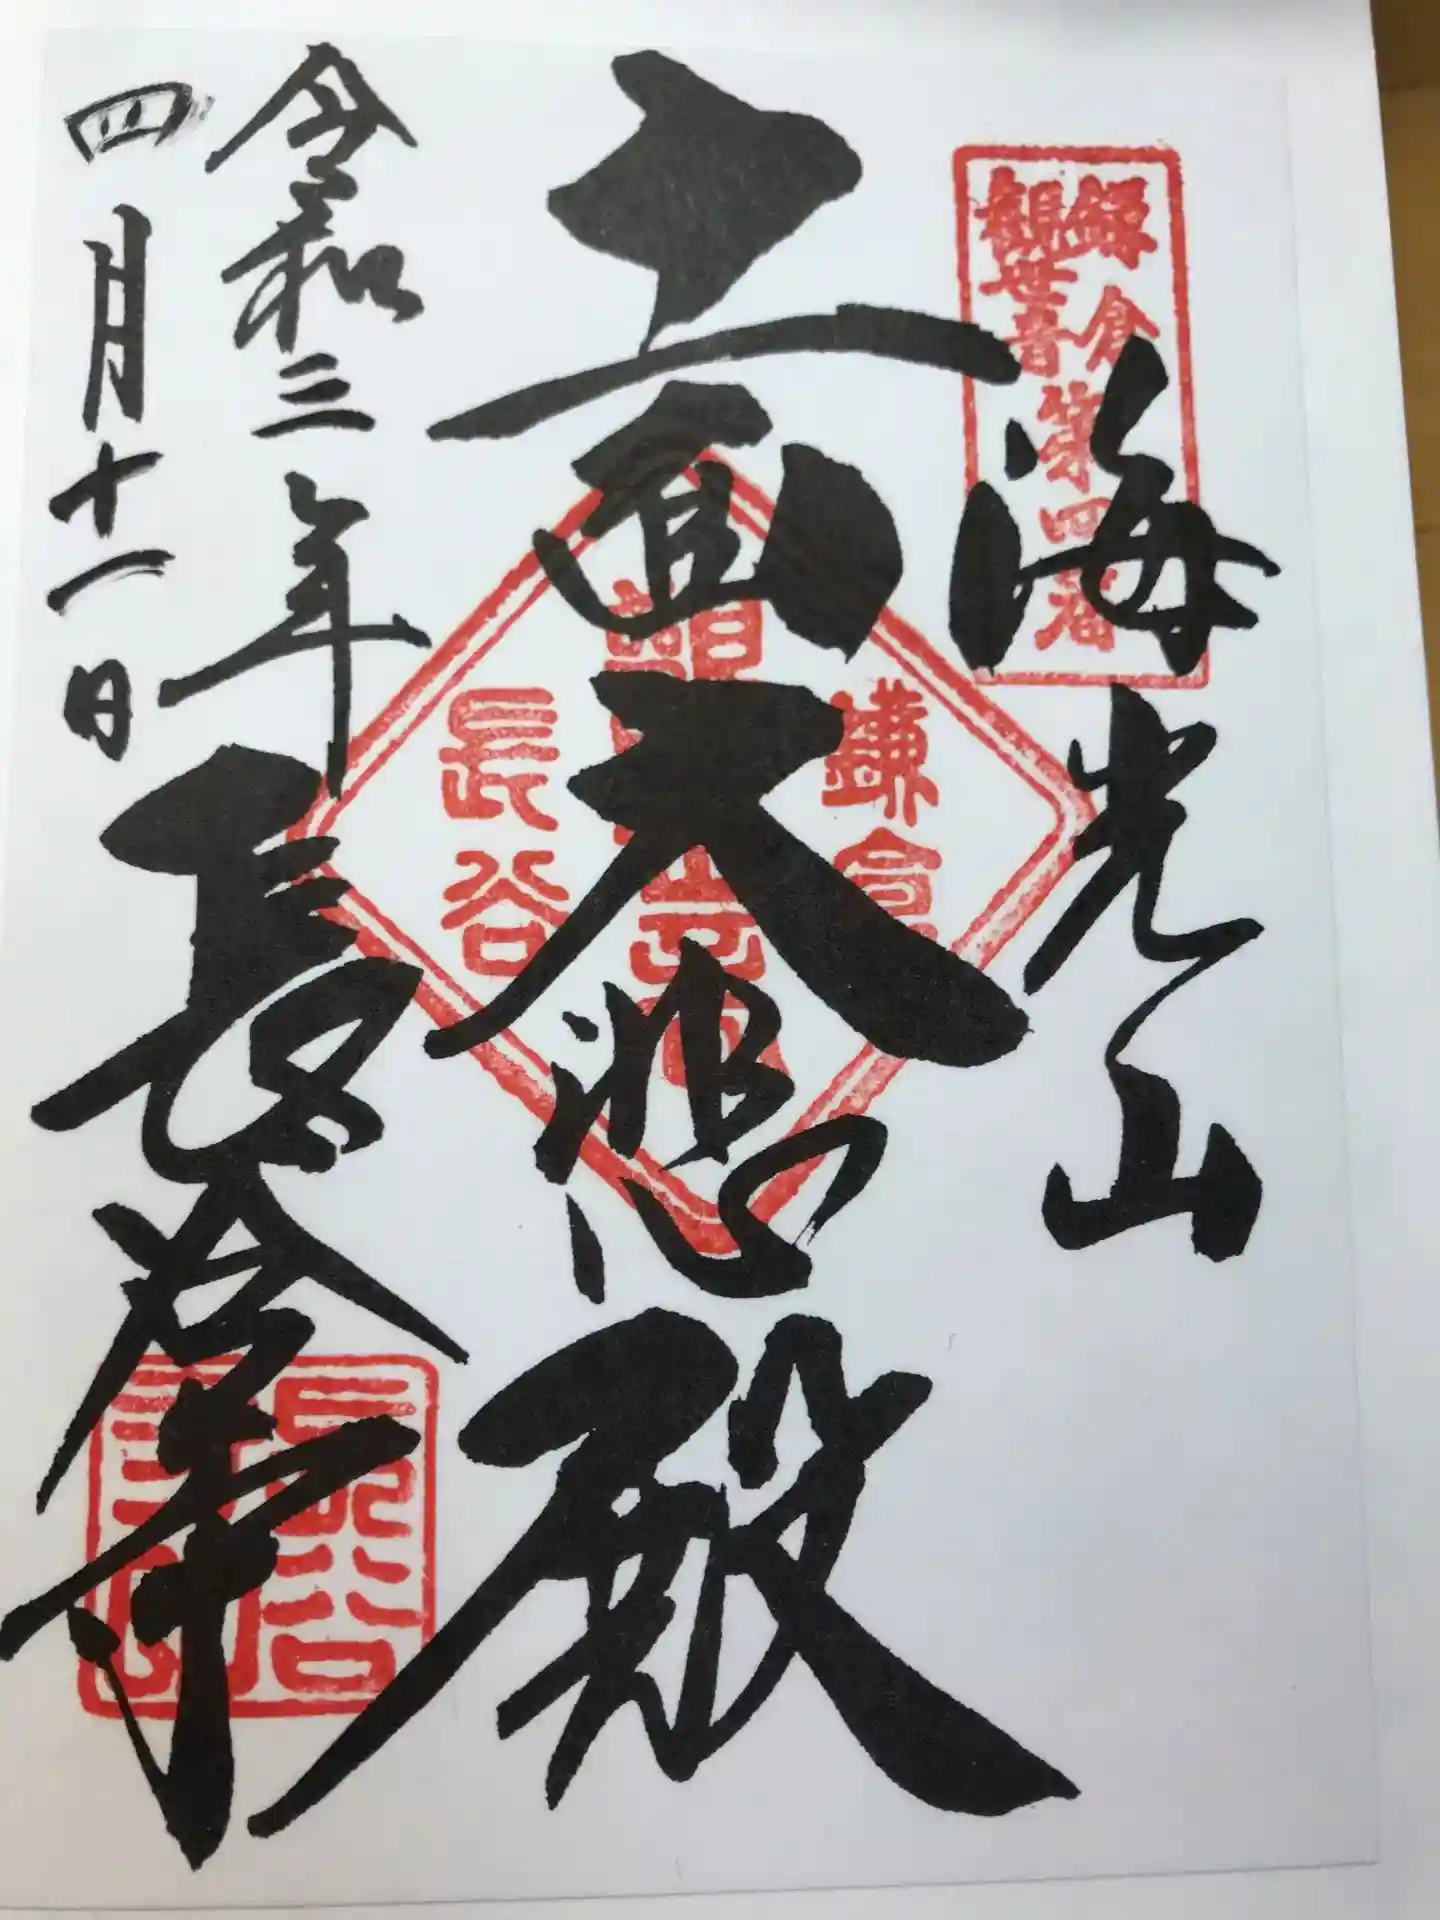 海光山
鎌倉
観世音第四番
十一面大悲殿
鎌倉
長谷
令和三年
四月十一日
長谷寺
長谷